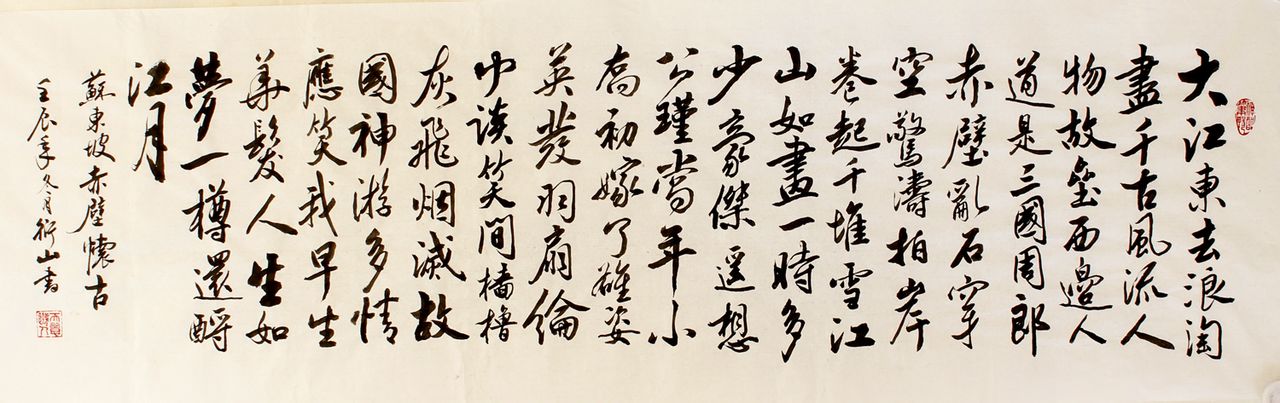 大江東去浪淘
盡千古風流人
物故壘西邊人
道是三國周郎
赤壁亂石穿
空驚濤拍岸
卷起千堆雪江
山如畫一時多
少豪傑遥想
公瑾當年小
喬初嫁了雄姿
英發羽扇綸
巾談笑間檣櫓
灰飛烟滅故
國神游多情
應笑我早生
華髮人生如
夢一樽還酹
江月
蘇東坡赤壁懷古
壬辰年冬月衍山書